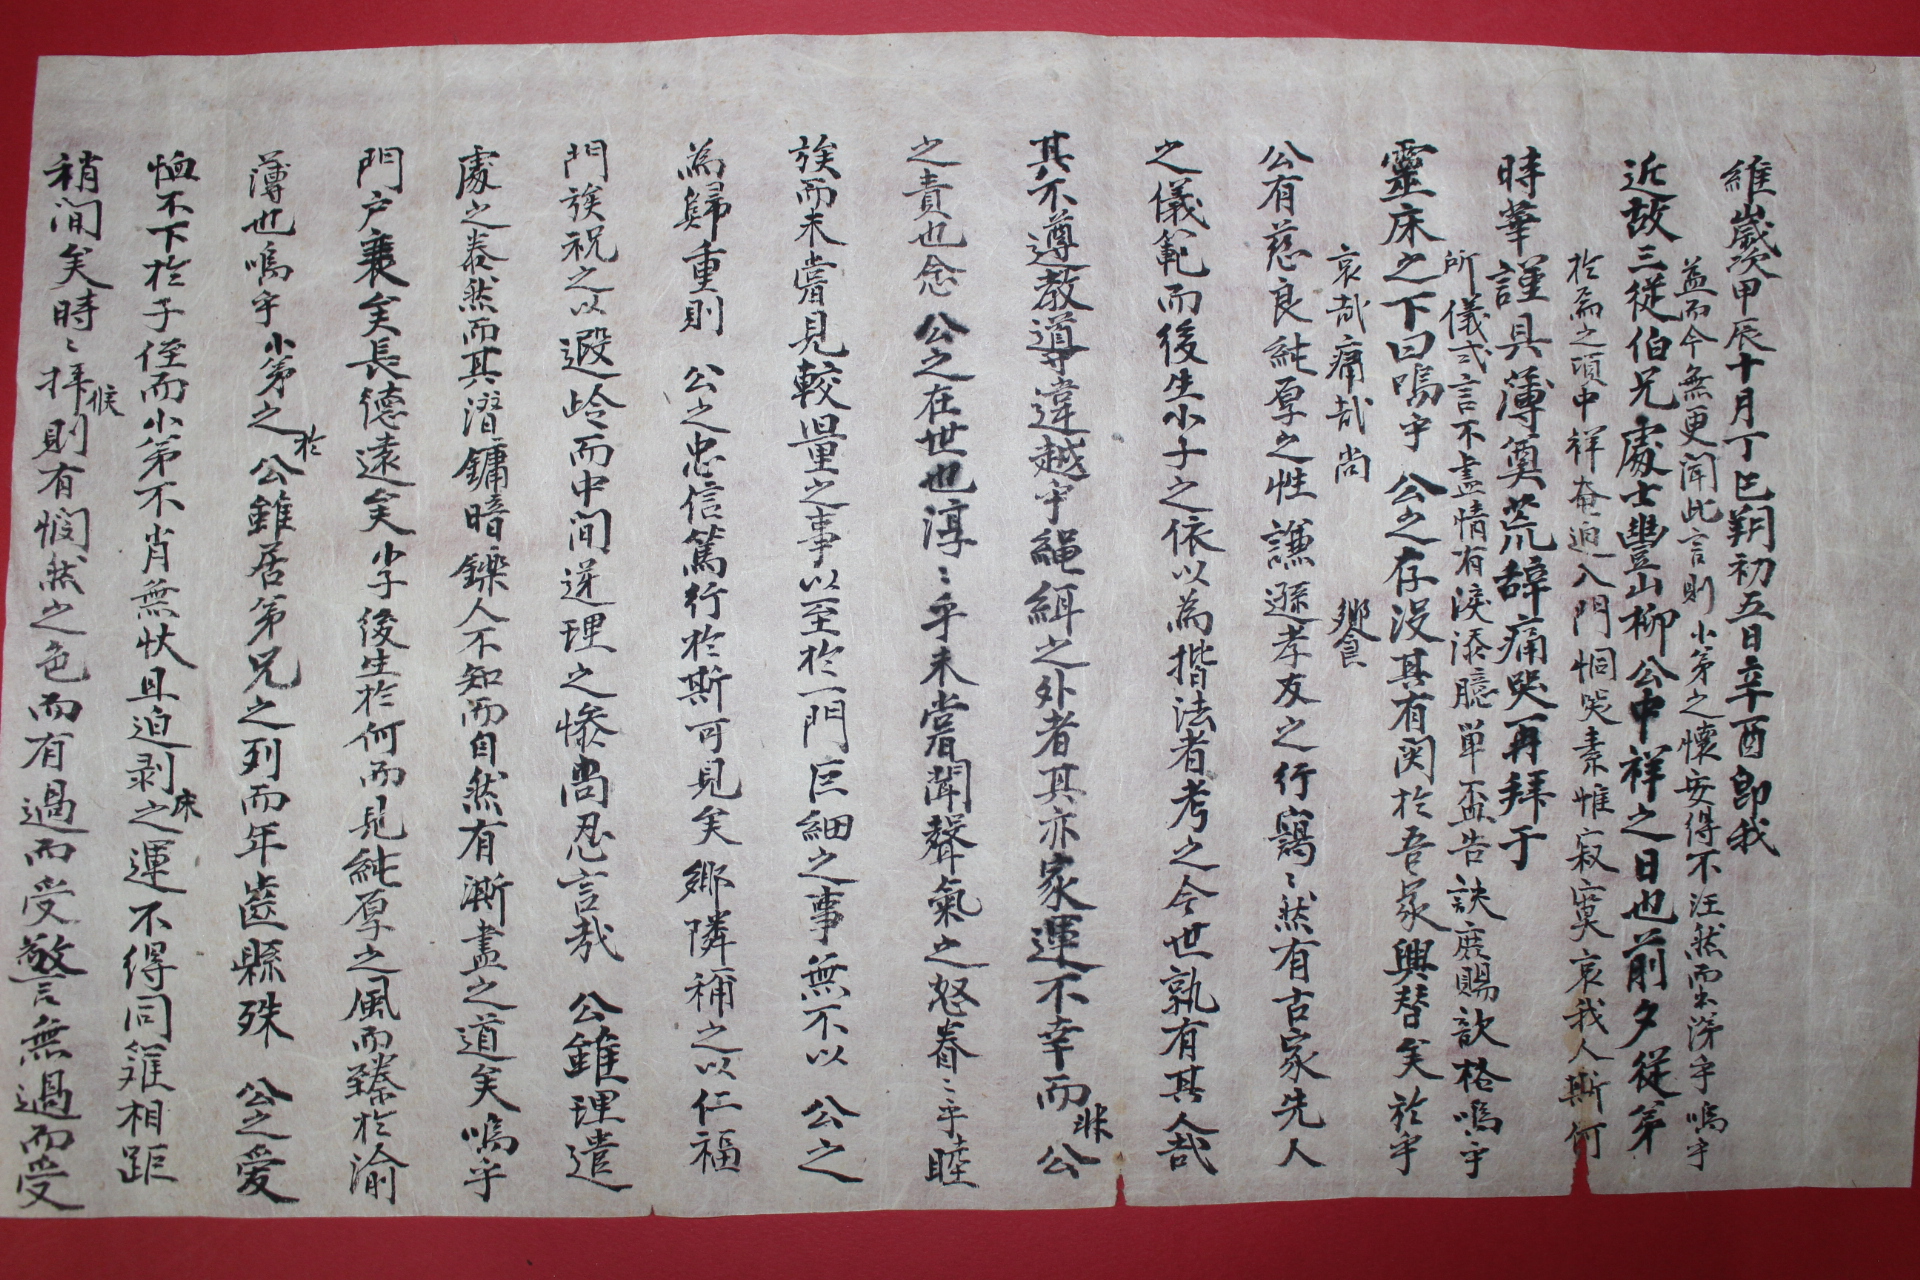 維歲次甲辰十月丁巳朔初五日辛酉卽我
近故三從伯兄處士豊山柳公中祥之日也前夕從弟
時華謹具薄奠荒辞痛哭再拜于
靈床之下曰嗚乎 公之存沒其有関於吾家興替矣於乎
公有慈良純厚之性謙遜孝友之行藹〻然有古家先人
之儀範而後生小子之依以為揩法者考之今世孰有其人哉
其不遵教導違越乎繩緝之外者其亦家運不幸而非公
之責也念 公之在世也淳〻乎未嘗聞聲氣之怒眷〻乎睦
族而未嘗見較量之事以至於一門巨細之事無不以 公之
為歸重則 公之忠信篤行於斯可見矣鄉隣稱之以仁福
門族祝之以遐岭而中間逆理之慘尚忍言哉 公雖理遣
處之泰然而其潛鏞暗鑠人不知而自然有漸盡之道矣嗚乎
門户衰矣長德遠矣小子後生於何而見純厚之風而臻於渝
薄也嗚乎小弟之於公雖居弟兄之列而年齒縣殊 公之愛
恤不下於子侄而小弟不肖無伏且迫剥床之運不得同籬相距
稍間矣時〻拜候則有憫然之色而有過而受警無過而受
益而今無更聞此言則小弟之懷安得不汪然而出涕乎嗚乎
於焉之頃中祥奄迫入門恫哭素惟寂寞哀我人斯何
所儀式言不盡情有淚添臆単盃告訣庶賜歆格嗚乎
哀哉痛哉尚
饗